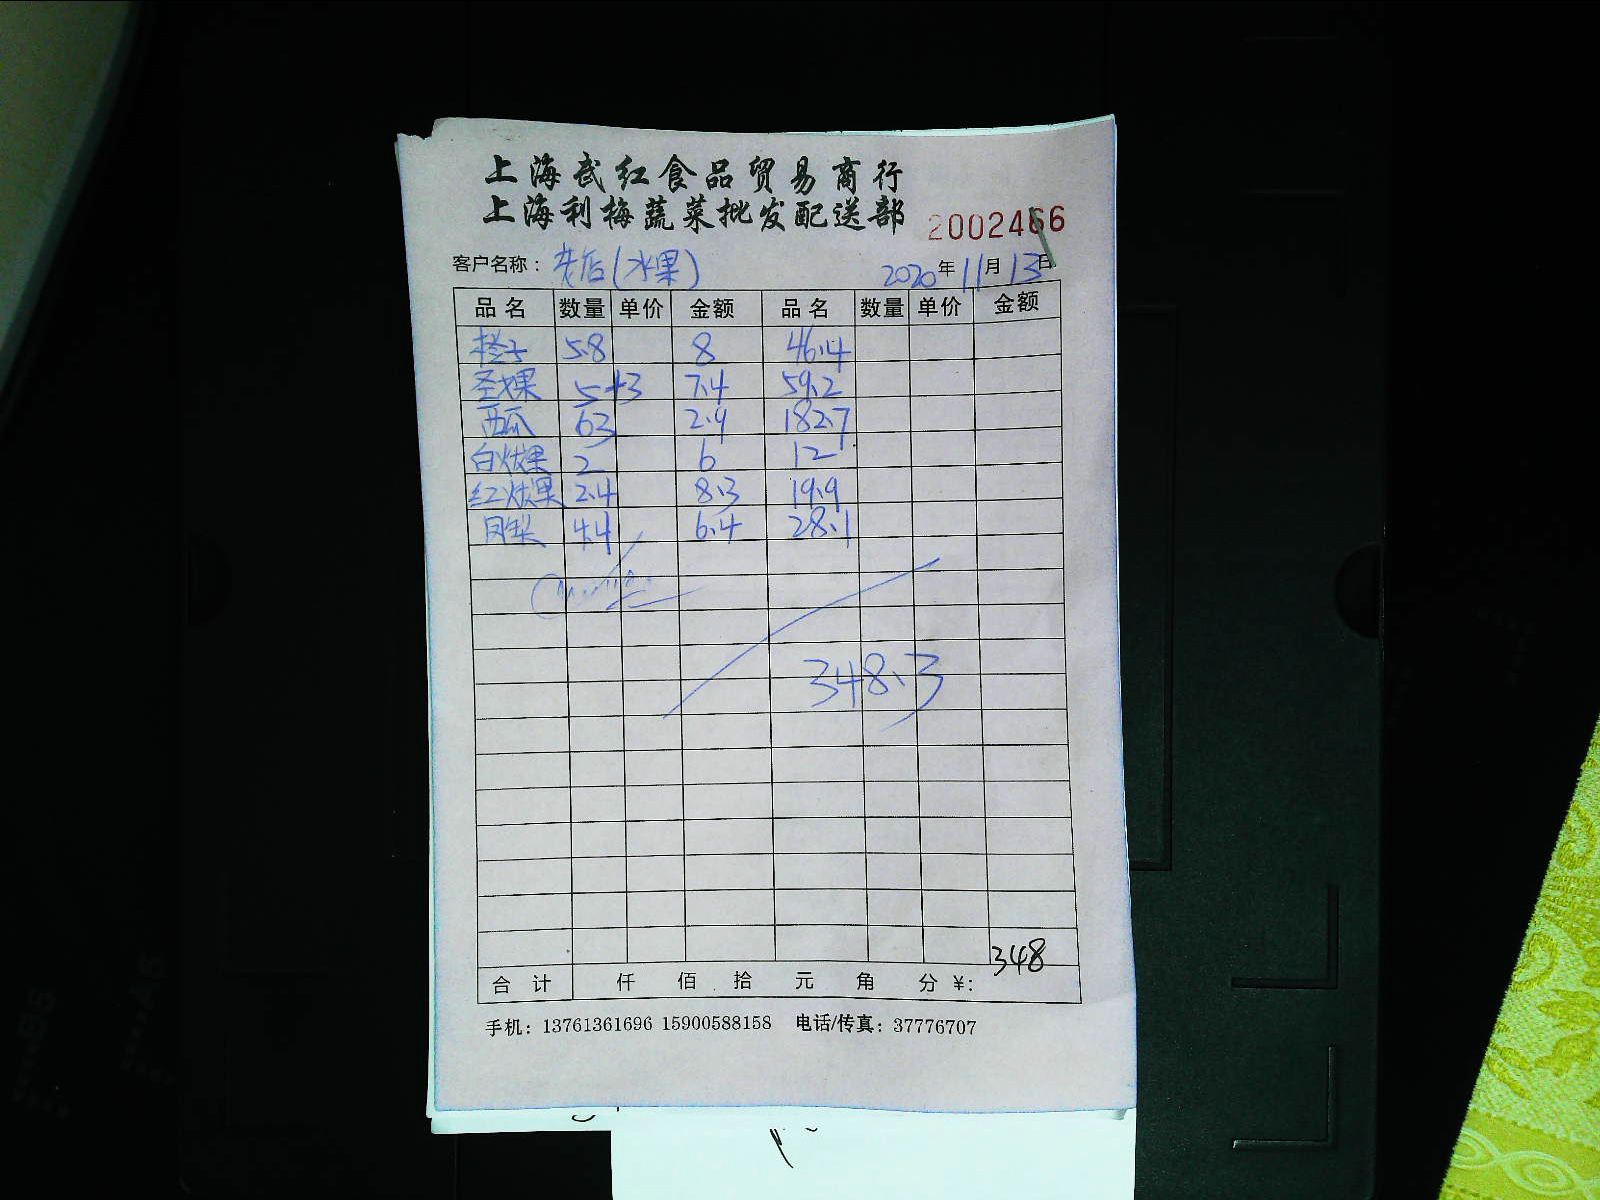 上海武红食品贸易商行
上海利梅蔬菜批发配送部 2002466
客户名称：老店(水果) 2020年11月13日
品名 数量 单价 金额 品名 数量 单价 金额
橙子 5.8 8 46.4
圣女果 5+3 7.4 59.2
西瓜 63 2.9 182.7
白火龙果 2 6 12
红火龙果 2.4 8.3 19.9
凤梨 4.4 6.4 28.1
348.3
348
合计 仟 佰 拾 元 角 分 ¥:
手机：13761361696 15900588158 电话/传真：37776707